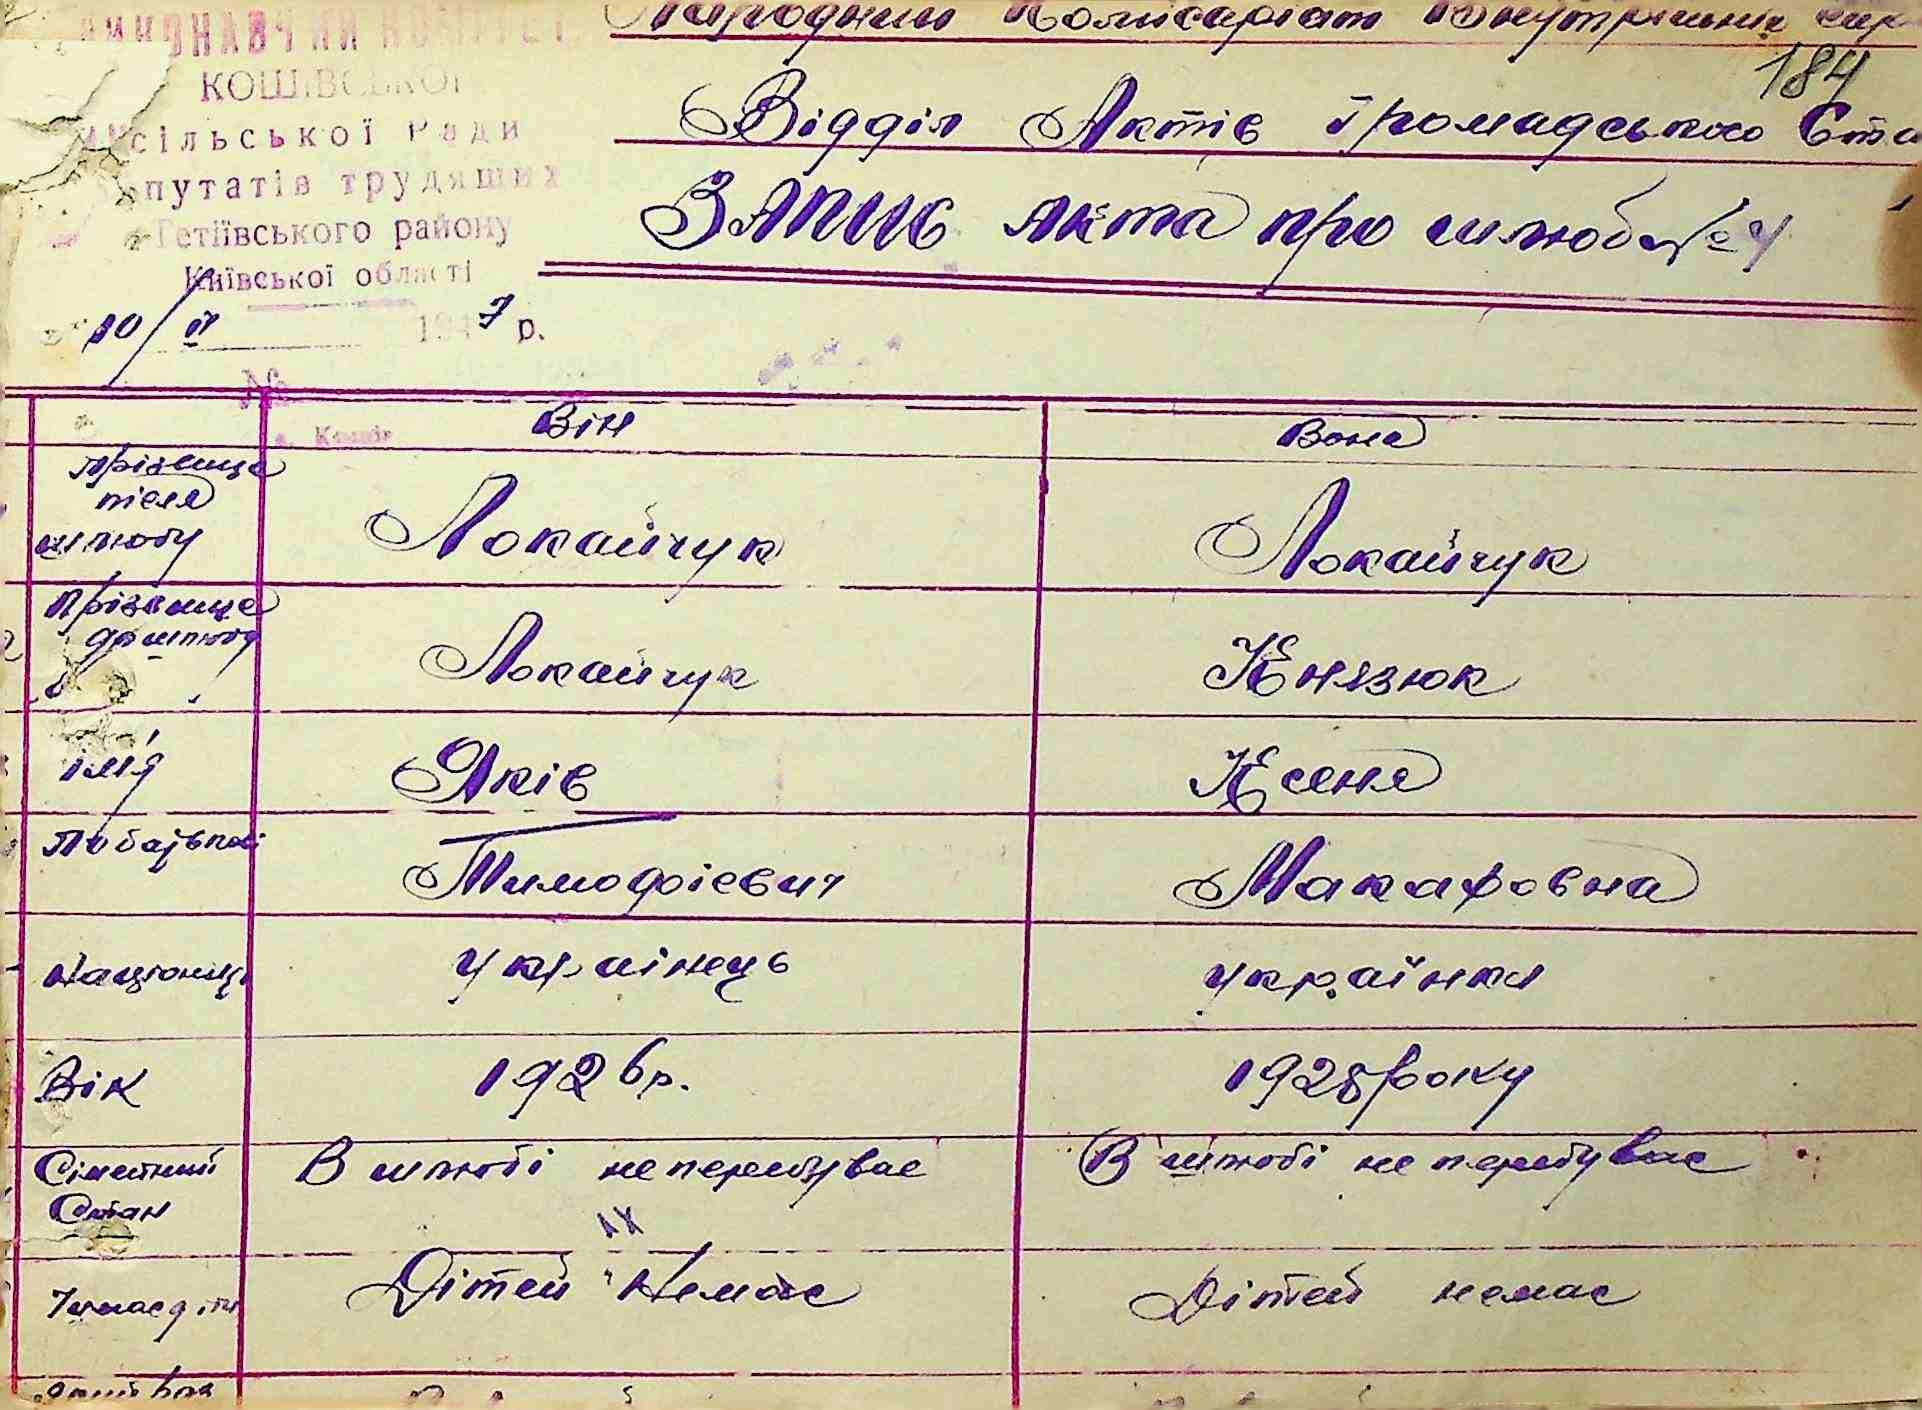 ВИКОНАВЧИЙ КОМІТЕТ
КОШІВСЬКОЇ
сільської Ради
депутатів трудящих
Тетіївського району
Київської області
10/ІІ 1947 р.
№
с. Кошів
Народний Комісаріат Внутрішніх спр
184
Відділ Актів Громадського Ста
ЗАПИС Акта про шлюб № 4
Він Вона
Прізвище після шлюбу Локайчук Локайчук
Прізвище до шлюбу Локайчук Князюк
ім'я Яків Ксеня
По батькові Тимофієвич Макаровна
Націонал Українець Українка
Вік 1926 р. 1928 року
Сімейний Стан В шлюбі не перебуває В шлюбі не перебуває
Дітей Немає Дітей немає